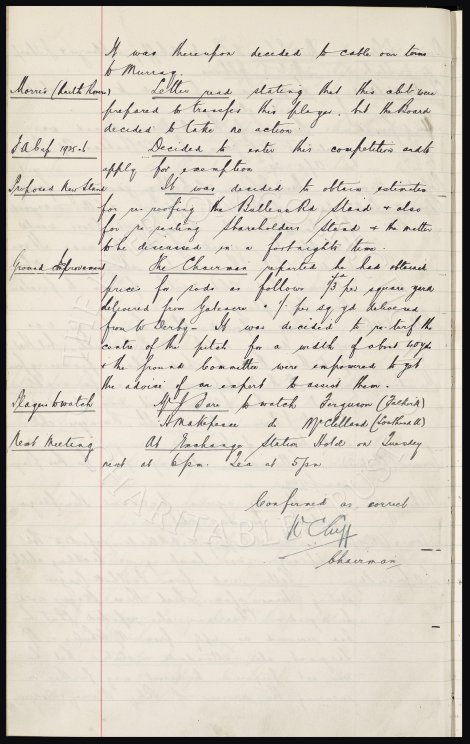 It was thereupon decided to cable our terms
to Murray.
Morris (Raith Rovers) Letter read stating that this club were
prepared to transfer this player, but the Board
decided to take no action
F A Cup 1925-6 Decided to enter this competition and to
apply for exemption
Proposed New Stand It was decided to obtain estimates
for re-roofing the Bullens Rd Stand & also
for re-seating Shareholders Stand & the matter
to be discussed in a fortnights time.
Ground Improvement The Chairman reported he had obtained
prices for sods as follows 1/3 per square yard
delivered from Gateacre & 1/- per sq yd delivered
from W Derby - It was decided to re-turf the
centre of the pitch for a width of about yds
& the Ground Committee were empowered to get
the advice of an expert to assist them.
Players to watch Mr J Sare to watch Ferguson (Falkirk)
A Makepeace do McClelland (Southend)
Next Meeting At Exchange Station Hotel on Tuesday
next at 6pm. Tea at 5pm
Confirmed as correct
W C Cuff
Chairman